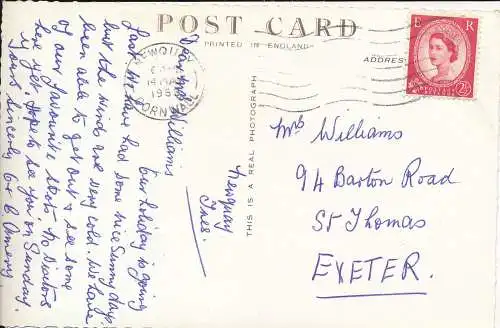 POST CARD
PRINTED IN ENGLAND
ADDRESS
E R
2½
NEWQUAY
CORNWALL
THIS IS A REAL PHOTOGRAPH
Newquay
Tues.
Dear Mrs Williams
Our holiday is going
fast. We have had some nice sunny days
but the winds are very cold. We have
been able to get out & see some
of our favourite spots. No visitors
here yet. Hope to see you on Sunday
Yours sincerely G & B Amery
Mrs Williams
94 Barton Road
St Thomas
EXETER.